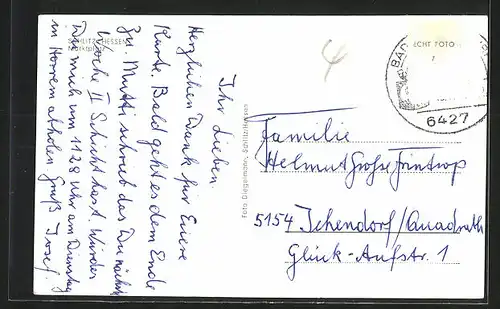 SCHLITZ/HESSEN
Marktplatz
Ihr Lieben
Herzlichen Dank für Euere
Karte. Bald geht es dem Ende
zu. Mutti schrieb das Du nächste
Woche II Schicht hast. Würdes
Du mich um 11.28 Uhr am Dienstag
in Horrem abholen Gruß Josef.
Foto Diegelmann, Schlitz/Hessen
4
ECHT FOTO
BAD
6427
Familie
Helmut Große Frintrop
5154 Ichendorf/Quadrath
Glück-Aufstr. 1